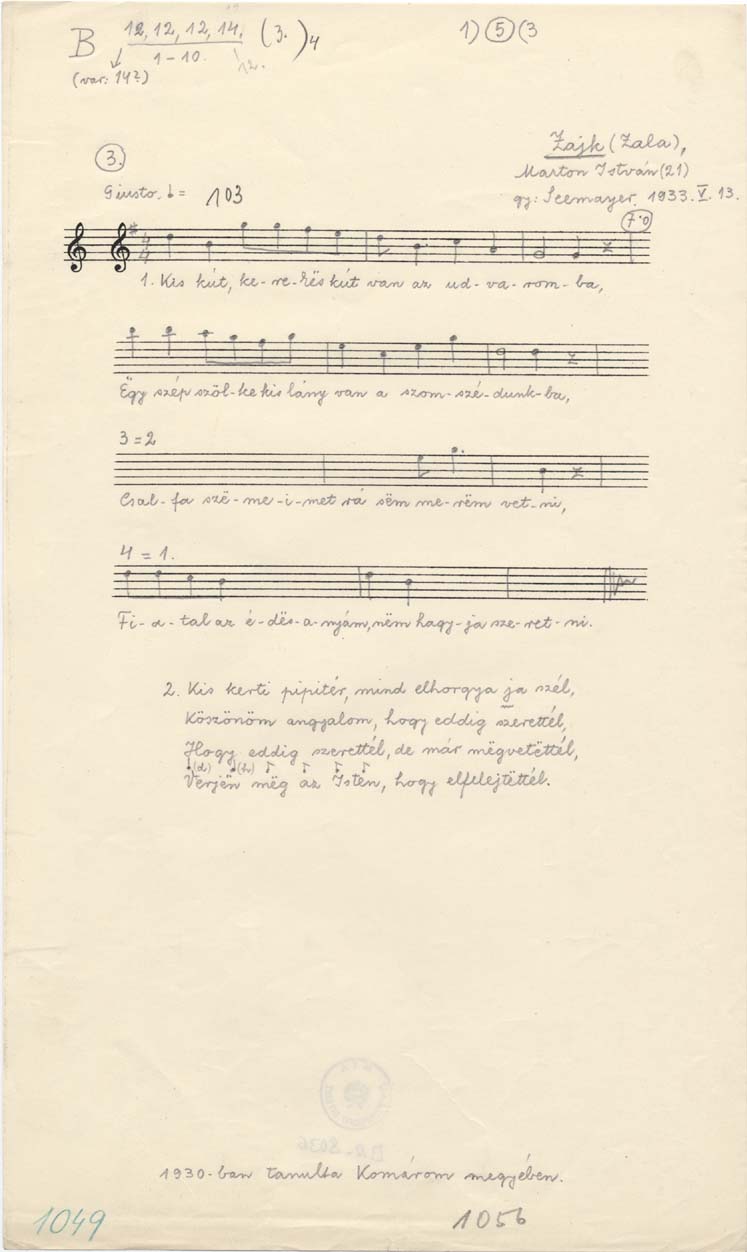 B 12, 12, 12, 14, (3.)4 1) 5 (3
1-10. 12.
(var: 14?)
Zajk (Zala),
3. Marton István (21)
Giusto. = 103 gy: Seemayer. 1933. V. 13.
1. Kis kút, ke-re-kës kút van az ud-va-rom-ba,
Ëgy szép szöl-ke kis lány van a szom-szé-dunk-ba,
3 = 2
Csal-fa szë-me-i-met rá sëm me-rëm vet-ni,
4 = 1.
Fi-a-tal az é-dës-a-nyám, nëm hagy-ja sze-ret-ni.
2. Kis kerti pipitér, mind elhorgya ja szél,
Köszönöm angyalom, hogy eddig szerettél,
Hogy eddig szerettél, de már mëgvetëttél,
(d) (h)
Verjën mëg az Isten, hogy elfelejtëttél.
1930-ban tanulta Komárom megyében.
1049 1056